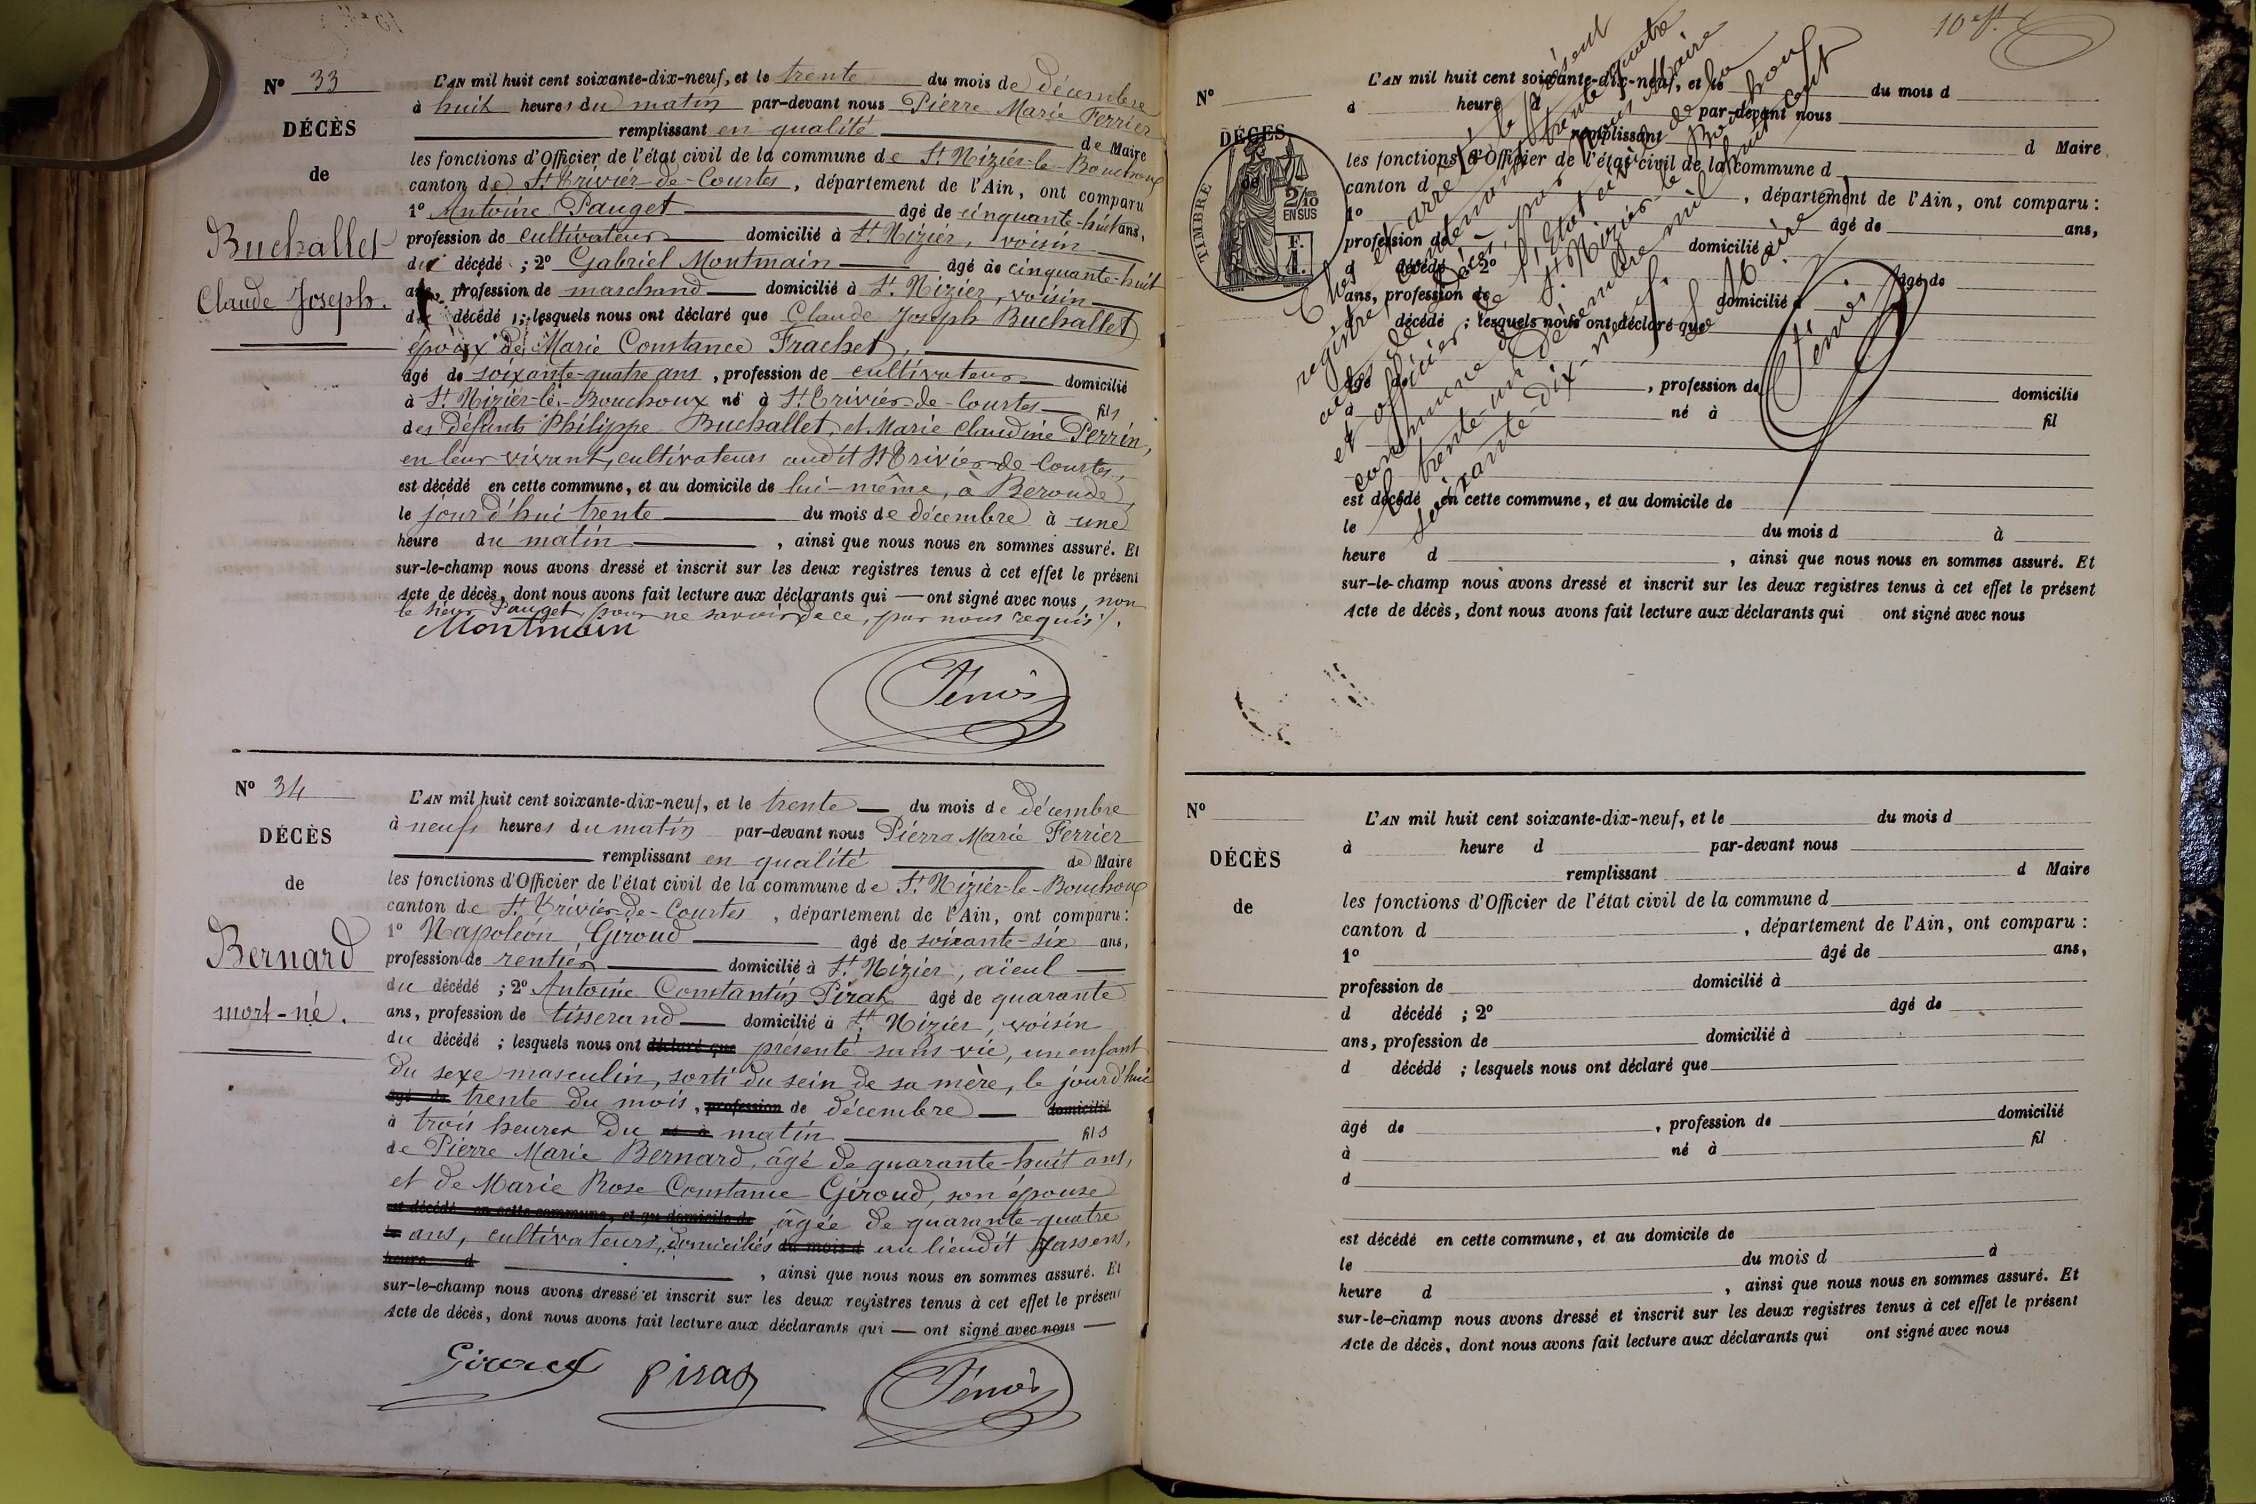 Nº 33
DÉCÈS
de
Buchallet
Claude Joseph.
L'AN mil huit cent soixante-dix-neuf, et le trente du mois de décembre
à huit heures du matin par-devant nous Pierre Marie Ferrier
remplissant en qualité de Maire
les fonctions d'Officier de l'état civil de la commune de St Nizier-le-Bouchoux
canton de St Trivier-de-Courtes, département de l'Ain, ont comparu
1º Antoine Pauget âgé de cinquante-huit ans,
profession de cultivateur domicilié à St Nizier, voisin
du décédé ; 2º Gabriel Montmain âgé de cinquante-huit
ans, profession de marchand domicilié à St Nizier, voisin
du décédé ; lesquels nous ont déclaré que Claude Joseph Buchallet
époux de Marie Constance Frachet,
âgé de soixante-quatre ans, profession de cultivateur domicilié
à St Nizier-le-Bouchoux né à St Trivier-de-Courtes fils
des défunts Philippe Buchallet, et Marie Claudine Perrin,
en leur vivant, cultivateurs audit St Trivier-de-Courtes,
est décédé en cette commune, et au domicile de lui-même, à Beroude,
le jourd'hui trente du mois de décembre à une
heure du matin, ainsi que nous nous en sommes assuré. Et
sur-le-champ nous avons dressé et inscrit sur les deux registres tenus à cet effet le présent
Acte de décès, dont nous avons fait lecture aux déclarants qui — ont signé avec nous, non
le sieur Pauget, pour ne savoir de ce, par nous requis.
Montmain
Nº 34
DÉCÈS
de
Bernard
mort-né.
L'AN mil huit cent soixante-dix-neuf, et le trente du mois de décembre
à neuf heures du matin par-devant nous Pierre Marie Ferrier
remplissant en qualité de Maire
les fonctions d'Officier de l'état civil de la commune de St Nizier-le-Bouchoux
canton de St Trivier-de-Courtes, département de l'Ain, ont comparu :
1º Napoléon Giroud âgé de soixante-six ans,
profession de rentier domicilié à St Nizier, aïeul
du décédé ; 2º Antoine Constantin Pirat âgé de quarante
ans, profession de tisserand domicilié à St Nizier, voisin
du décédé ; lesquels nous ont déclaré que présenté sans vie, un enfant
du sexe masculin, sorti du sein de sa mère, le jourd'hui
âgé de trente du mois, profession de décembre domicilié
à trois heures du né à matin fils
de Pierre Marie Bernard, âgé de quarante-huit ans,
et de Marie Rose Constance Giroud, son épouse
est décédé en cette commune, et au domicile de âgée de quarante-quatre
le ans, cultivateurs, domiciliés du mois d au lieudit
heure d , ainsi que nous nous en sommes assuré. Et
sur-le-champ nous avons dressé et inscrit sur les deux registres tenus à cet effet le présent
Acte de décès, dont nous avons fait lecture aux déclarants qui — ont signé avec nous —
Giroud Pirat
Nº
DÉCES
de
TIMBRE
2/10
EN SUS
F.
1.
L'AN mil huit cent soixante-dix-neuf, et le du mois d
à heure d par-devant nous
remplissant d Maire
les fonctions d'Officier de l'état civil de la commune d
canton d , département de l'Ain, ont comparu :
1º âgé de ans,
profession de domicilié à
d décédé ; 2º âgé de
ans, profession de domicilié à
d décédé ; lesquels nous ont déclaré que
âgé de , profession de domicilié
à né à fil
d
est décédé en cette commune, et au domicile de
le du mois d à
heure d , ainsi que nous nous en sommes assuré. Et
sur-le-champ nous avons dressé et inscrit sur les deux registres tenus à cet effet le présent
Acte de décès, dont nous avons fait lecture aux déclarants qui ont signé avec nous
Clos et arrêté le présent
registre, contenant trente quatre
actes de décès, par nous Maire
et officier de l'Etat civil de la
commune de St Nizier-le-Bouchoux
le trente-un décembre mil huit cent
soixante-dix-neuf.
Le Maire
Nº
DÉCÈS
de
L'AN mil huit cent soixante-dix-neuf, et le du mois d
à heure d par-devant nous
remplissant d Maire
les fonctions d'Officier de l'état civil de la commune d
canton d , département de l'Ain, ont comparu :
1º âgé de ans,
profession de domicilié à
d décédé ; 2º âgé de
ans, profession de domicilié à
d décédé ; lesquels nous ont déclaré que
âgé de , profession de domicilié
à né à fil
d
est décédé en cette commune, et au domicile de
le du mois d à
heure d , ainsi que nous nous en sommes assuré. Et
sur-le-champ nous avons dressé et inscrit sur les deux registres tenus à cet effet le présent
Acte de décès, dont nous avons fait lecture aux déclarants qui ont signé avec nous